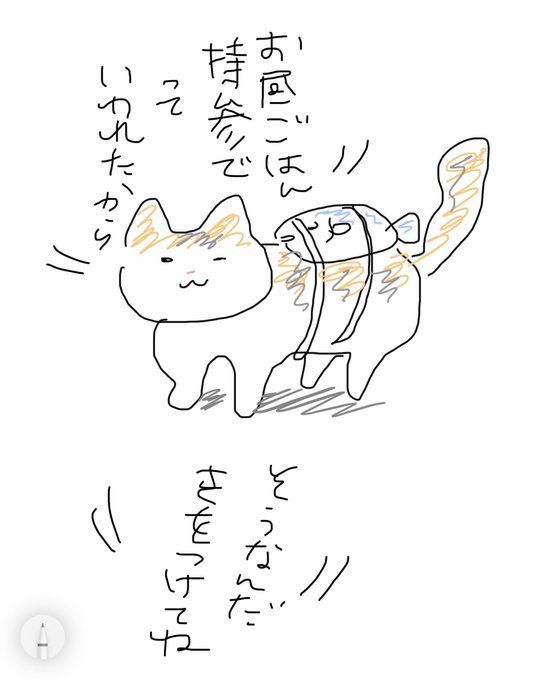 お昼ごはん
持参で
って
いわれたから
そうなんだ
きをつけてね